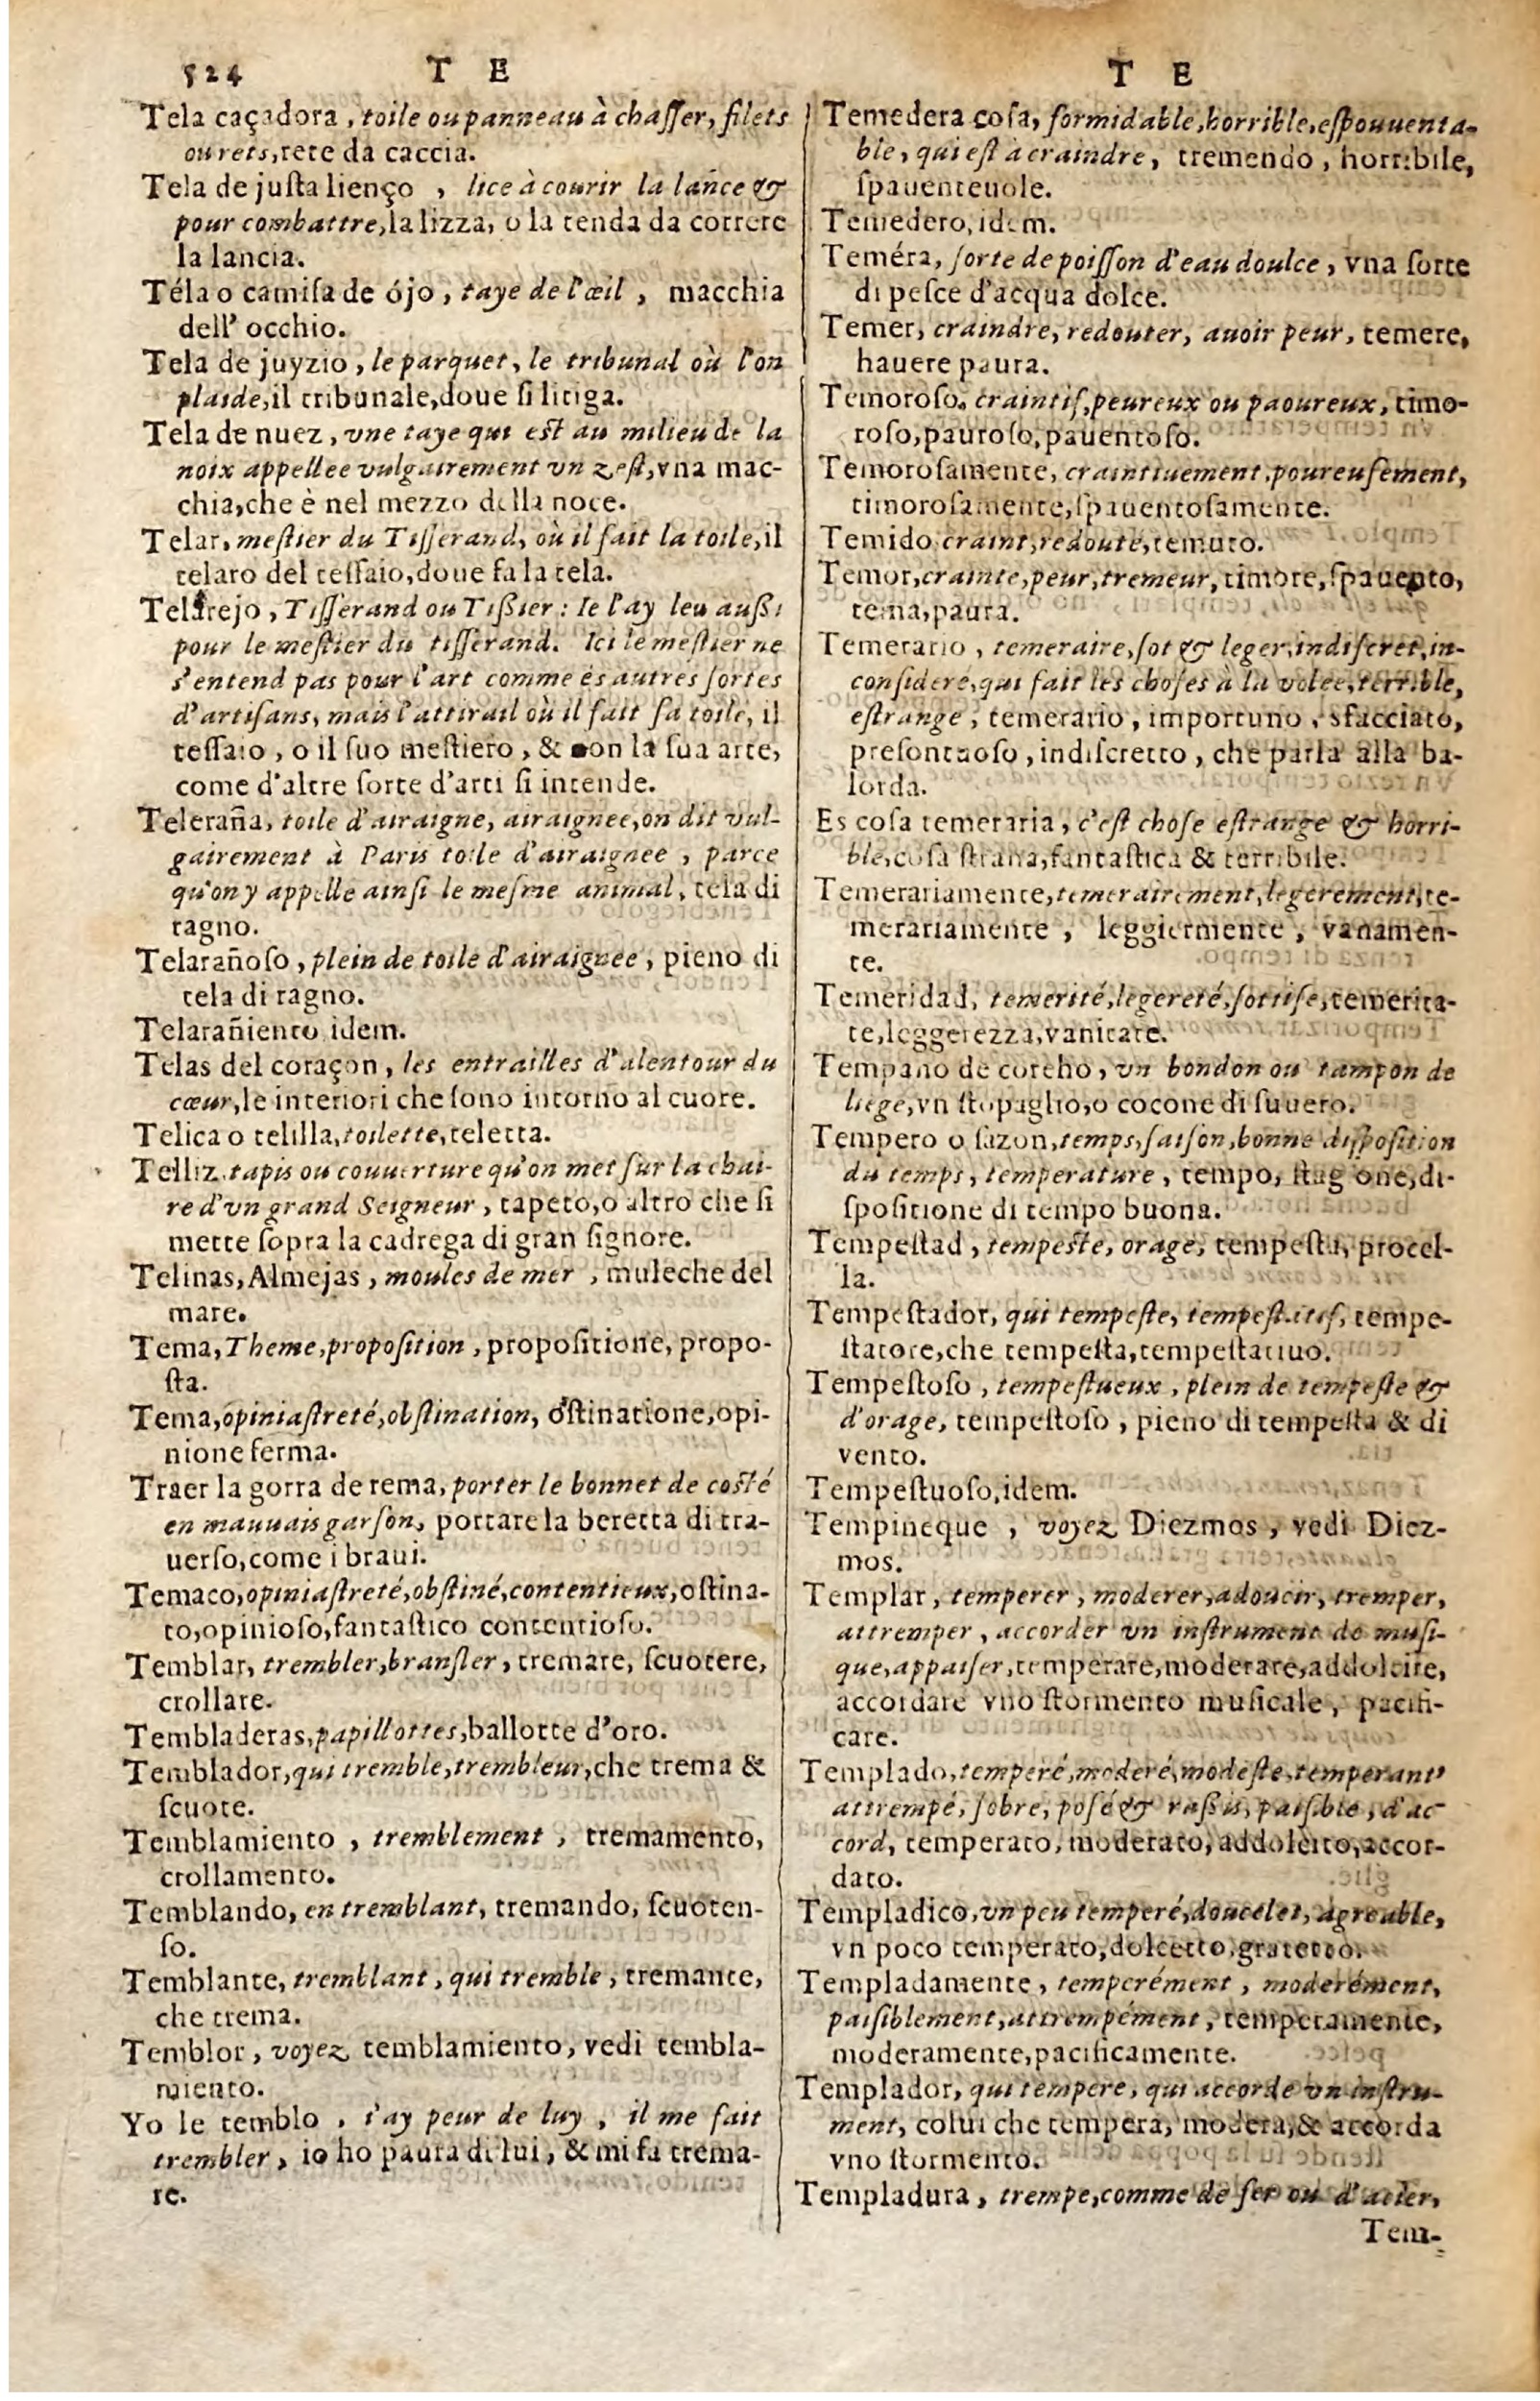 524 T E
Tela caçadora, toile ou panneau à chaſſer, filets
ou rets, rete da caccia.
Tela de juſta lienço, lice à courir la lance &
pour combattre, la lizza, o la tenda da correre
la lancia.
Téla o camiſa de ójo, taye de l'œil, macchia
dell' occhio.
Tela de juyzio, le parquet, le tribunal où l'on
plaide, il tribunale, doue ſi litiga.
Tela de nuez, vne taye qui est au milieu de la
noix appellee vulgairement vn zest, vna mac-
chia, che è nel mezzo della noce.
Telar, meſtier du Tiſſerand, où il fait la toile, il
telaro del teſſaio, doue fa la tela.
Telarejo, Tiſſerand ou Tiſſier: Ie l'ay leu auſſi
pour le meſtier du tiſſerand. Ici le meſtier ne
s'entend pas pour l'art comme és autres ſortes
d'artiſans, mais l'attirail où il fait ſa toile, il
teſſaio, o il ſuo meſtiero, & non la ſua arte,
come d'altre ſorte d'arti ſi intende.
Teleraña, toile d'airaigne, airaignee, on dit vul-
gairement à Paris toile d'airaignee, parce
qu'on y appelle ainſi le meſme animal, tela di
ragno.
Telarañoſo, plein de toile d'airaignee, pieno di
tela di ragno.
Telarañiento idem.
Telas del coraçon, les entrailles d'alentour du
cœur, le interiori che ſono intorno al cuore.
Telica o telilla, toilette, teletta.
Telliz, tapis ou couuerture qu'on met ſur la chai-
re d'vn grand Seigneur, tapeto, o altro che ſi
mette ſopra la cadrega di gran ſignore.
Telinas, Almejas, moules de mer, muleche del
mare.
Tema, Theme, propoſition, propoſitione, propo-
ſta.
Tema, opiniaſtreté, obſtination, oſtinatione, opi-
nione ferma.
Traer la gorra de rema, porter le bonnet de costé
en mauuais garſon, portare la beretta di tra-
uerſo, come i braui.
Temaco, opiniaſtreté, obſtiné, contentieux, oſtina-
to, opinioſo, fantaſtico contentioſo.
Temblar, trembler, branſler, tremare, ſcuotere,
crollare.
Tembladeras, papillottes, ballotte d'oro.
Temblador, qui tremble, trembleur, che trema &
ſcuote.
Temblamiento, tremblement, tremamento,
crollamento.
Temblando, en tremblant, tremando, ſcuoten-
ſo.
Temblante, tremblant, qui tremble, tremante,
che trema.
Temblor, voyez temblamiento, vedi tembla-
miento.
Yo le temblo, i'ay peur de luy, il me fait
trembler, io ho paura di lui, & mi fa trema-
re.
T E
Temedera coſa, formidable, horrible, eſpouuenta-
ble, qui eſt à craindre, tremendo, horribile,
ſpauenteuole.
Temedero, idem.
Teméra, ſorte de poiſſon d'eau doulce, vna ſorte
di peſce d'acqua dolce.
Temer, craindre, redouter, auoir peur, temere,
hauere paura.
Temoroſo, craintif, peureux ou paoureux, timo-
roſo, pauroſo, pauentoſo.
Temoroſamente, craintiuement, poureuſement,
timoroſamente, ſpauentoſamente.
Temido craint, redouté, temuto.
Temor, crainte, peur, tremeur, timore, ſpauento,
tema, paura.
Temerario, temeraire, ſot & leger, indiſcret, in-
conſideré, qui fait les choſes à la volée, terrible,
eſtrange, temerario, importuno, sfacciato,
preſontuoſo, indiſcretto, che parla alla ba-
lorda.
Es coſa temeraria, c'eſt choſe eſtrange & horri-
ble, coſa ſtrana, fantaſtica & terribile.
Temerariamente, temerairement, legerement, te-
merariamente, leggiermente, vanamen-
te.
Temeridad, temerité, legereté, ſottiſe, temerita-
te, leggerezza, vanitate.
Tempano de corcho, vn bondon ou tampon de
liege, vn ſtopaglio, o cocone di ſuuero.
Tempero o ſazon, temps, ſaiſon, bonne diſpoſition
du temps, temperature, tempo, ſtagione, di-
ſpoſitione di tempo buona.
Tempeſtad, tempeſte, orage, tempeſta, procel-
la.
Tempeſtador, qui tempeſte, tempeſtatif, tempe-
ſtatore, che tempeſta, tempeſtatiuo.
Tempeſtoſo, tempeſtueux, plein de tempeſte &
d'orage, tempeſtoſo, pieno di tempeſta & di
vento.
Tempeſtuoſo, idem.
Tempineque, voyez Diezmos, vedi Diez-
mos.
Templar, temperer, moderer, adoucir, tremper,
attremper, accorder vn inſtrument de muſi-
que, appaiſer, temperare, moderare, addolcire,
accordare vno ſtormento muſicale, pacifi-
care.
Templado, temperé, moderé, modeſte, temperant,
attrempé, ſobre, poſé & raſſis, paiſible, d'ac-
cord, temperato, moderato, addolcito, accor-
dato.
Templadico, vn peu temperé, doucelet, agreable,
vn poco temperato, dolcetto, gratetto.
Templadamente, temperément, moderément,
paiſiblement, attrempément, temperamente,
moderamente, pacificamente.
Templador, qui tempere, qui accorde vn inſtru-
ment, colui che tempera, modera, & accorda
vno ſtormento.
Templadura, trempe, comme de fer ou d'acier,
Tem-